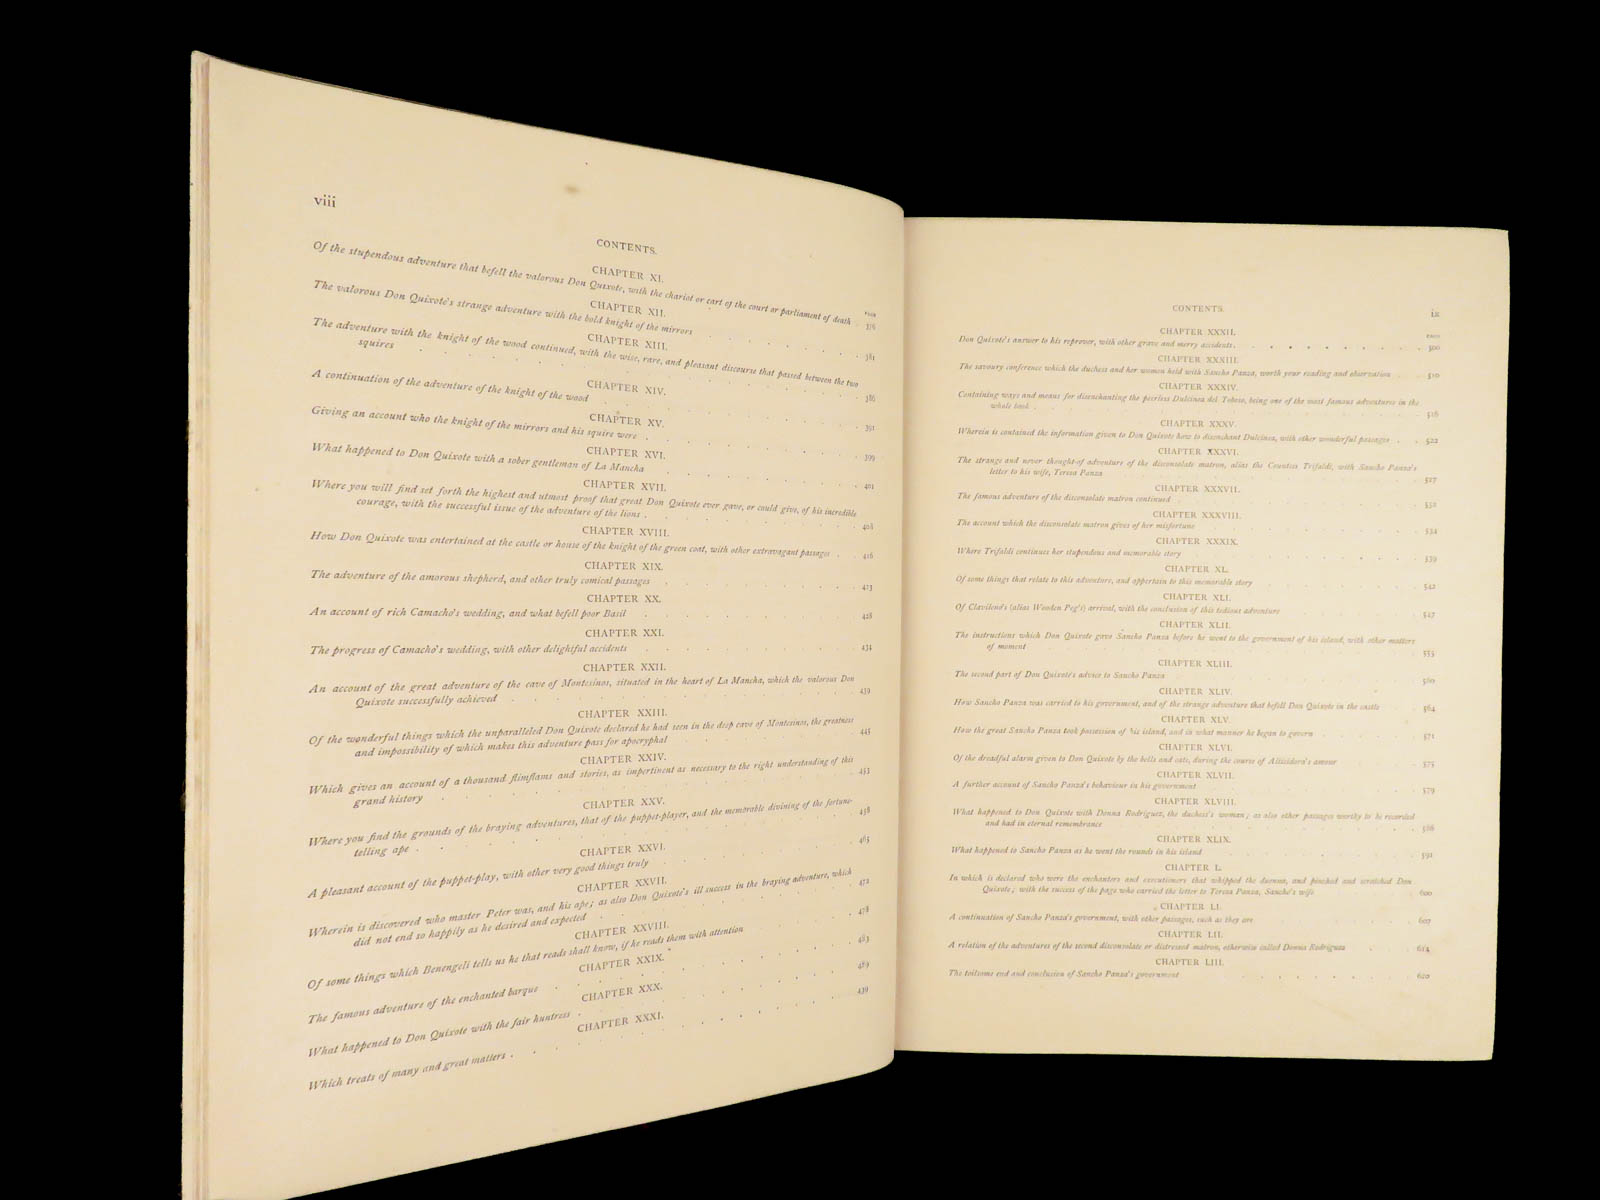 viii
CONTENTS.
CHAPTER XI.
PAGE
Of the stupendous adventure that befell the valorous Don Quixote, with the chariot or cart of the court or parliament of death 376
CHAPTER XII.
The valorous Don Quixote's strange adventure with the bold knight of the mirrors 381
CHAPTER XIII.
The adventure with the knight of the wood continued, with the wise, rare, and pleasant discourse that passed between the two
squires 386
CHAPTER XIV.
A continuation of the adventure of the knight of the wood 391
CHAPTER XV.
Giving an account who the knight of the mirrors and his squire were 399
CHAPTER XVI.
What happened to Don Quixote with a sober gentleman of La Mancha 401
CHAPTER XVII.
Where you will find set forth the highest and utmost proof that great Don Quixote ever gave, or could give, of his incredible
courage, with the successful issue of the adventure of the lions 408
CHAPTER XVIII.
How Don Quixote was entertained at the castle or house of the knight of the green coat, with other extravagant passages 416
CHAPTER XIX.
The adventure of the amorous shepherd, and other truly comical passages 423
CHAPTER XX.
An account of rich Camacho's wedding, and what befell poor Basil 428
CHAPTER XXI.
The progress of Camacho's wedding, with other delightful accidents 434
CHAPTER XXII.
An account of the great adventure of the cave of Montesinos, situated in the heart of La Mancha, which the valorous Don
Quixote successfully achieved 439
CHAPTER XXIII.
Of the wonderful things which the unparalleled Don Quixote declared he had seen in the deep cave of Montesinos, the greatness
and impossibility of which makes this adventure pass for apocryphal 445
CHAPTER XXIV.
Which gives an account of a thousand flimflams and stories, as impertinent as necessary to the right understanding of this
grand history 453
CHAPTER XXV.
Where you find the grounds of the braying adventures, that of the puppet-player, and the memorable divining of the fortune-
telling ape 458
CHAPTER XXVI.
A pleasant account of the puppet-play, with other very good things truly 465
CHAPTER XXVII.
Wherein is discovered who master Peter was, and his ape; as also Don Quixote's ill success in the braying adventure, which
did not end so happily as he desired and expected 472
CHAPTER XXVIII.
Of some things which Benengeli tells us he that reads shall know, if he reads them with attention 478
CHAPTER XXIX.
The famous adventure of the enchanted barque 483
CHAPTER XXX.
What happened to Don Quixote with the fair huntress 489
CHAPTER XXXI.
Which treats of many and great matters 439
CONTENTS.
ix
CHAPTER XXXII.
PAGE
Don Quixote's answer to his reprover, with other grave and merry accidents 500
CHAPTER XXXIII.
The savoury conference which the duchess and her women held with Sancho Panza, worth your reading and observation 510
CHAPTER XXXIV.
Containing ways and means for disenchanting the peerless Dulcinea del Toboso, being one of the most famous adventures in the
whole book 516
CHAPTER XXXV.
Wherein is contained the information given to Don Quixote how to disenchant Dulcinea, with other wonderful passages 522
CHAPTER XXXVI.
The strange and never thought-of adventure of the disconsolate matron, alias the Countess Trifaldi, with Sancho Panza's
letter to his wife, Teresa Panza 527
CHAPTER XXXVII.
The famous adventure of the disconsolate matron continued 532
CHAPTER XXXVIII.
The account which the disconsolate matron gives of her misfortune 534
CHAPTER XXXIX.
Where Trifaldi continues her stupendous and memorable story 539
CHAPTER XL.
Of some things that relate to this adventure, and appertain to this memorable story 542
CHAPTER XLI.
Of Clavileno's (alias Wooden Peg's) arrival, with the conclusion of this tedious adventure 547
CHAPTER XLII.
The instructions which Don Quixote gave Sancho Panza before he went to the government of his island, with other matters
of moment 555
CHAPTER XLIII.
The second part of Don Quixote's advice to Sancho Panza 560
CHAPTER XLIV.
How Sancho Panza was carried to his government, and of the strange adventure that befell Don Quixote in the castle 564
CHAPTER XLV.
How the great Sancho Panza took possession of his island, and in what manner he began to govern 571
CHAPTER XLVI.
Of the dreadful alarm given to Don Quixote by the bells and cats, during the course of Altisidora's amour 575
CHAPTER XLVII.
A further account of Sancho Panza's behaviour in his government 579
CHAPTER XLVIII.
What happened to Don Quixote with Donna Rodriguez, the duchess's woman; as also other passages worthy to be recorded
and had in eternal remembrance 586
CHAPTER XLIX.
What happened to Sancho Panza as he went the rounds in his island 591
CHAPTER L.
In which is declared who were the enchanters and executioners that whipped the duenna, and pinched and scratched Don
Quixote; with the success of the page who carried the letter to Teresa Panza, Sancho's wife 600
CHAPTER LI.
A continuation of Sancho Panza's government, with other passages, such as they are 607
CHAPTER LII.
A relation of the adventures of the second disconsolate or distressed matron, otherwise called Donna Rodriguez 614
CHAPTER LIII.
The toilsome end and conclusion of Sancho Panza's government 620